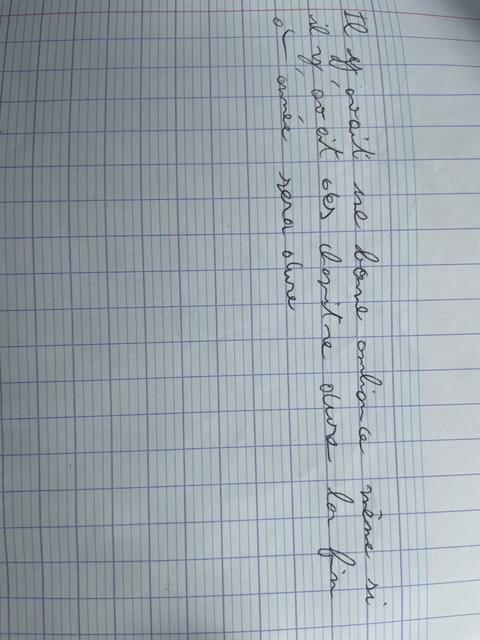 Il y'avait ne bonne ambiance même si
il y'avait des chapitre dure la fin
d'année sera dure